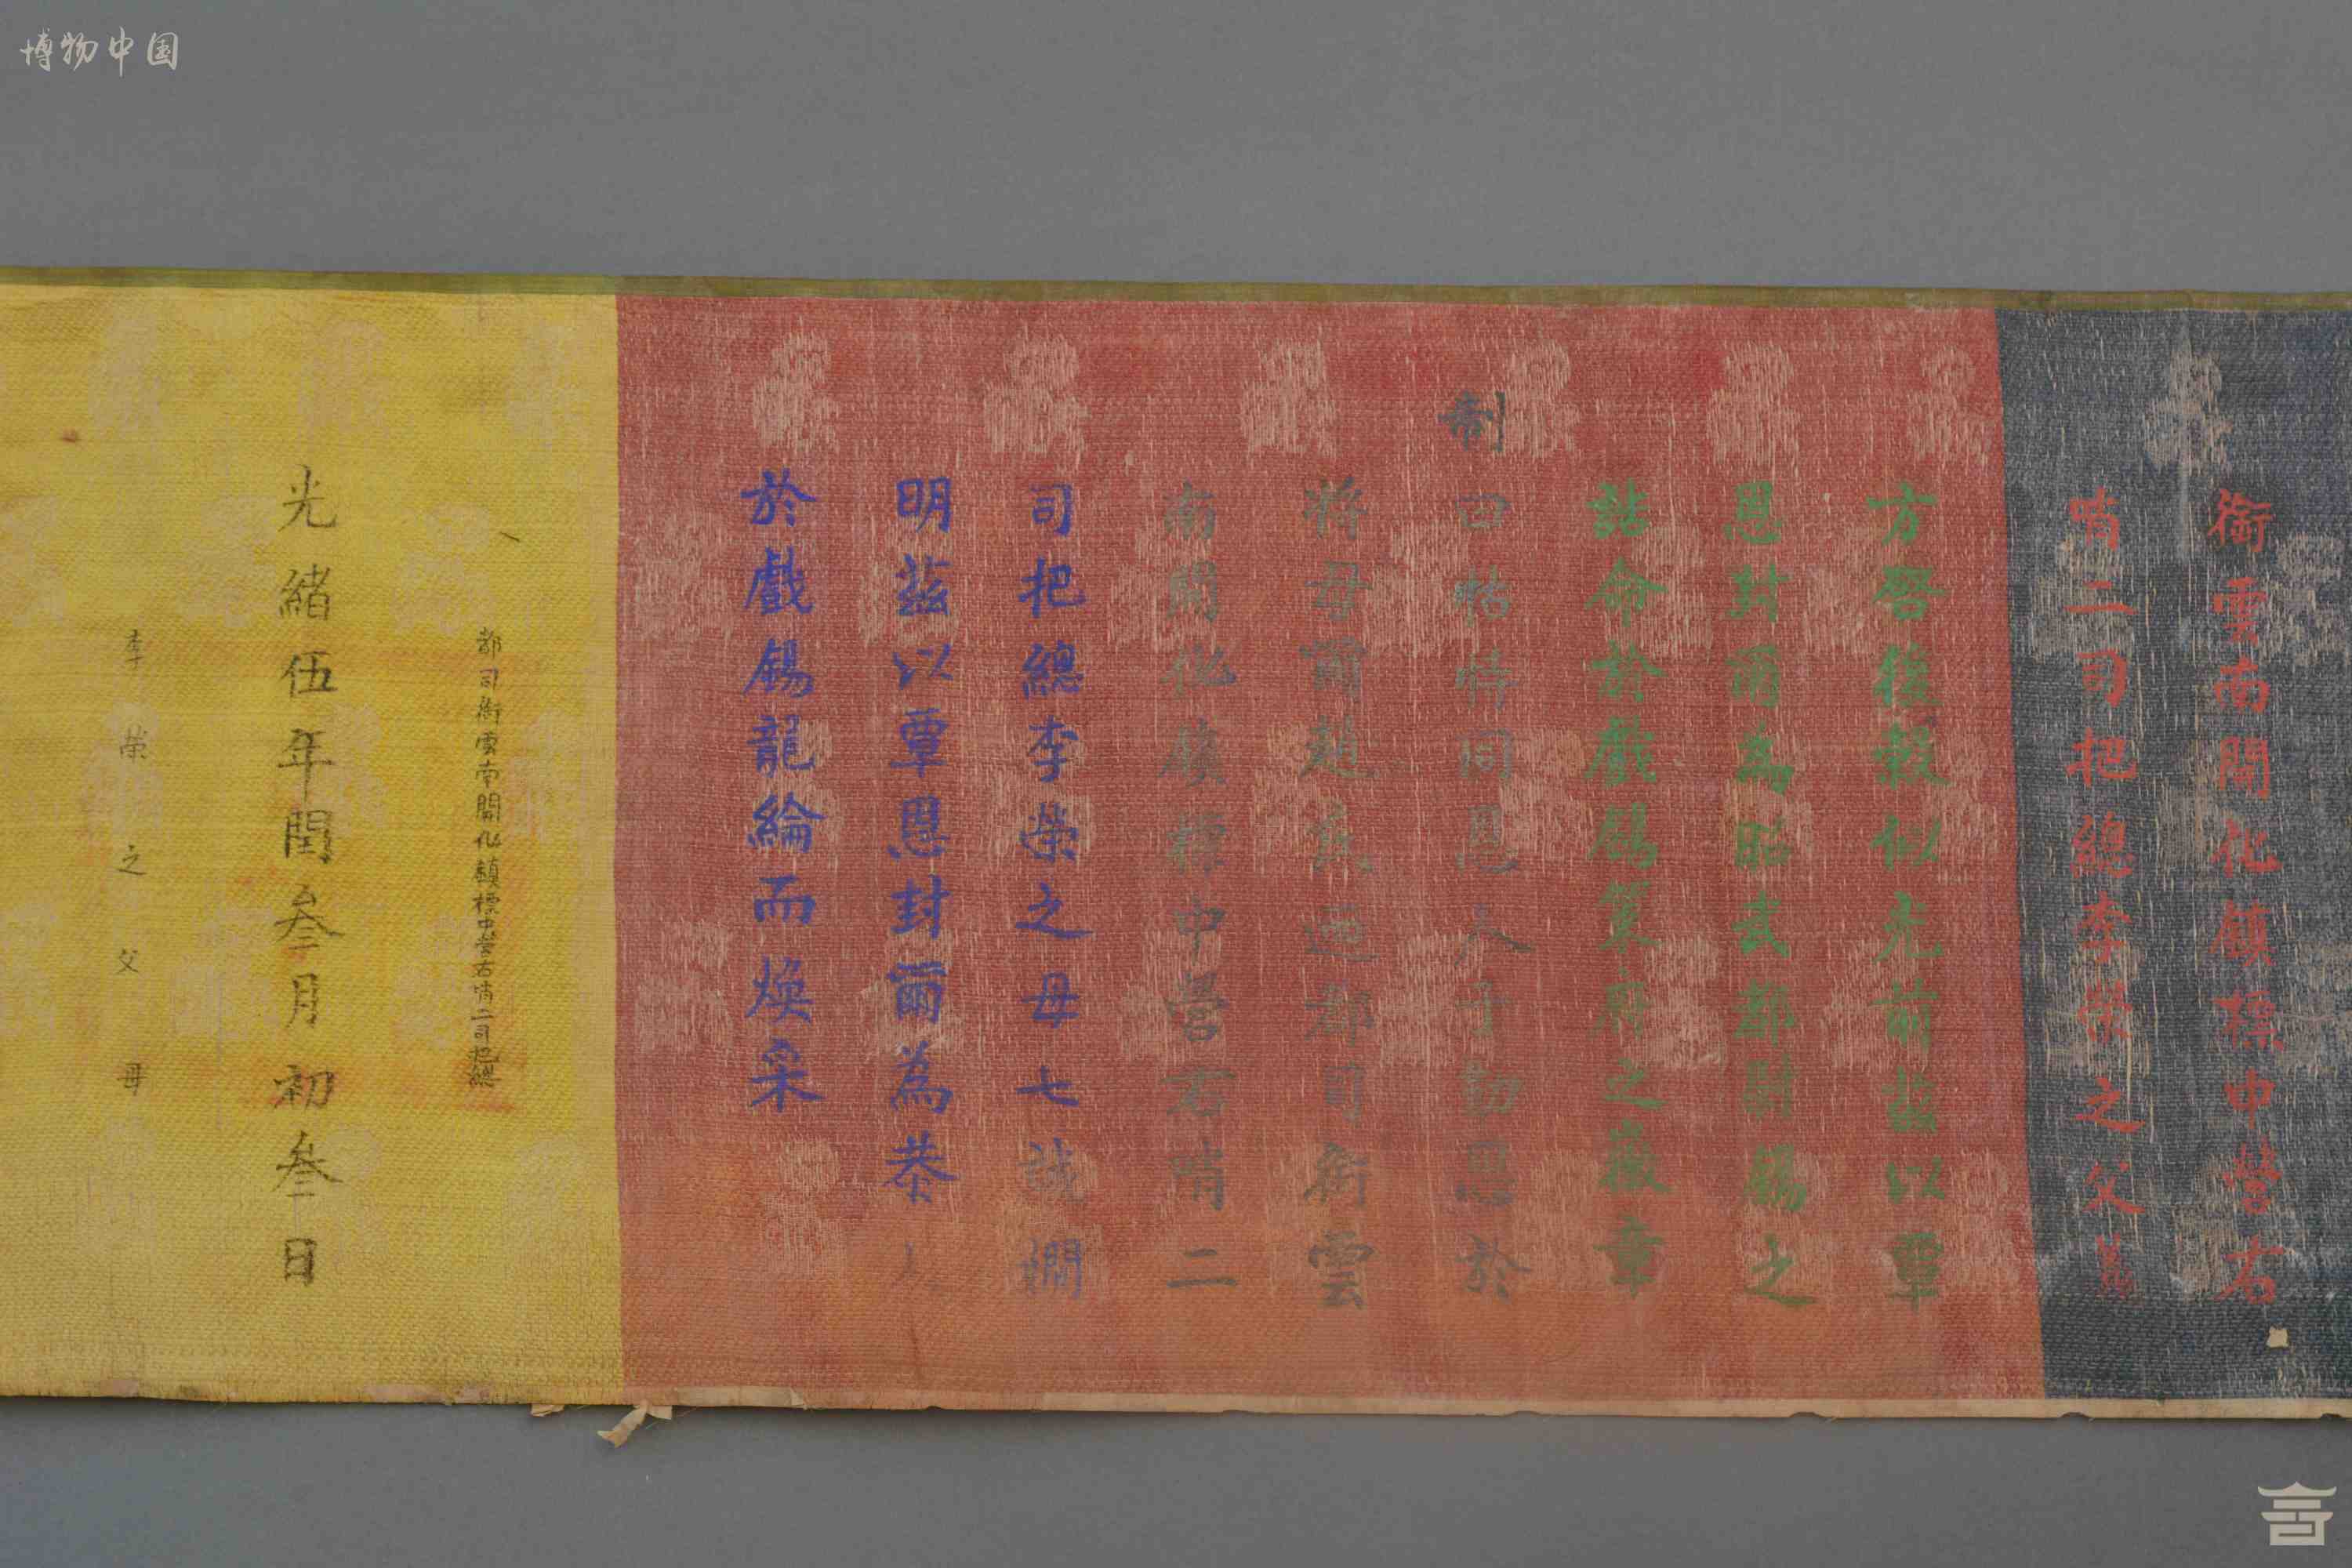 博物中国
銜雲南開化鎮標中營右
哨二司把總李榮之父
方啓後穀似光前茲以覃
恩封爾為昭武都尉錫之
誥命於戲錫策府之徽章
制
曰怙恃同恩人子勤恩於
將母爾趙氏迺都司銜雲
南開化鎮標中營右哨二
司把總李榮之母七誡嫻
明茲以覃恩封爾為恭人
於戲錫龍綸而煥采
都司銜雲南開化鎮標中營右哨二司把總
光緒伍年閏叁月初叁日
李榮之父母